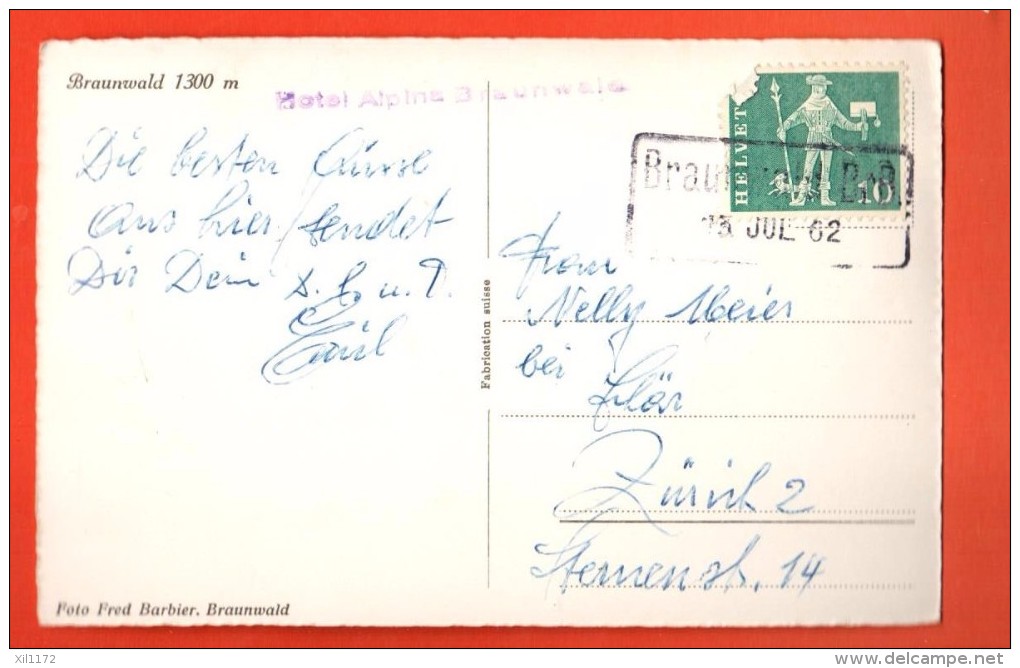 Braunwald 1300 m
Hotel Alpina Braunwald
Die besten Grüsse
aus hier sendet
Dir Dein
Emil
Fabrication suisse
HELVETIA
10
Braunwald
13 JUL 62
Frau
Nelly Meier
bei
Zürich 2
Sternenstr. 14
Foto Fred Barbier, Braunwald
xil1172
delcampe.net